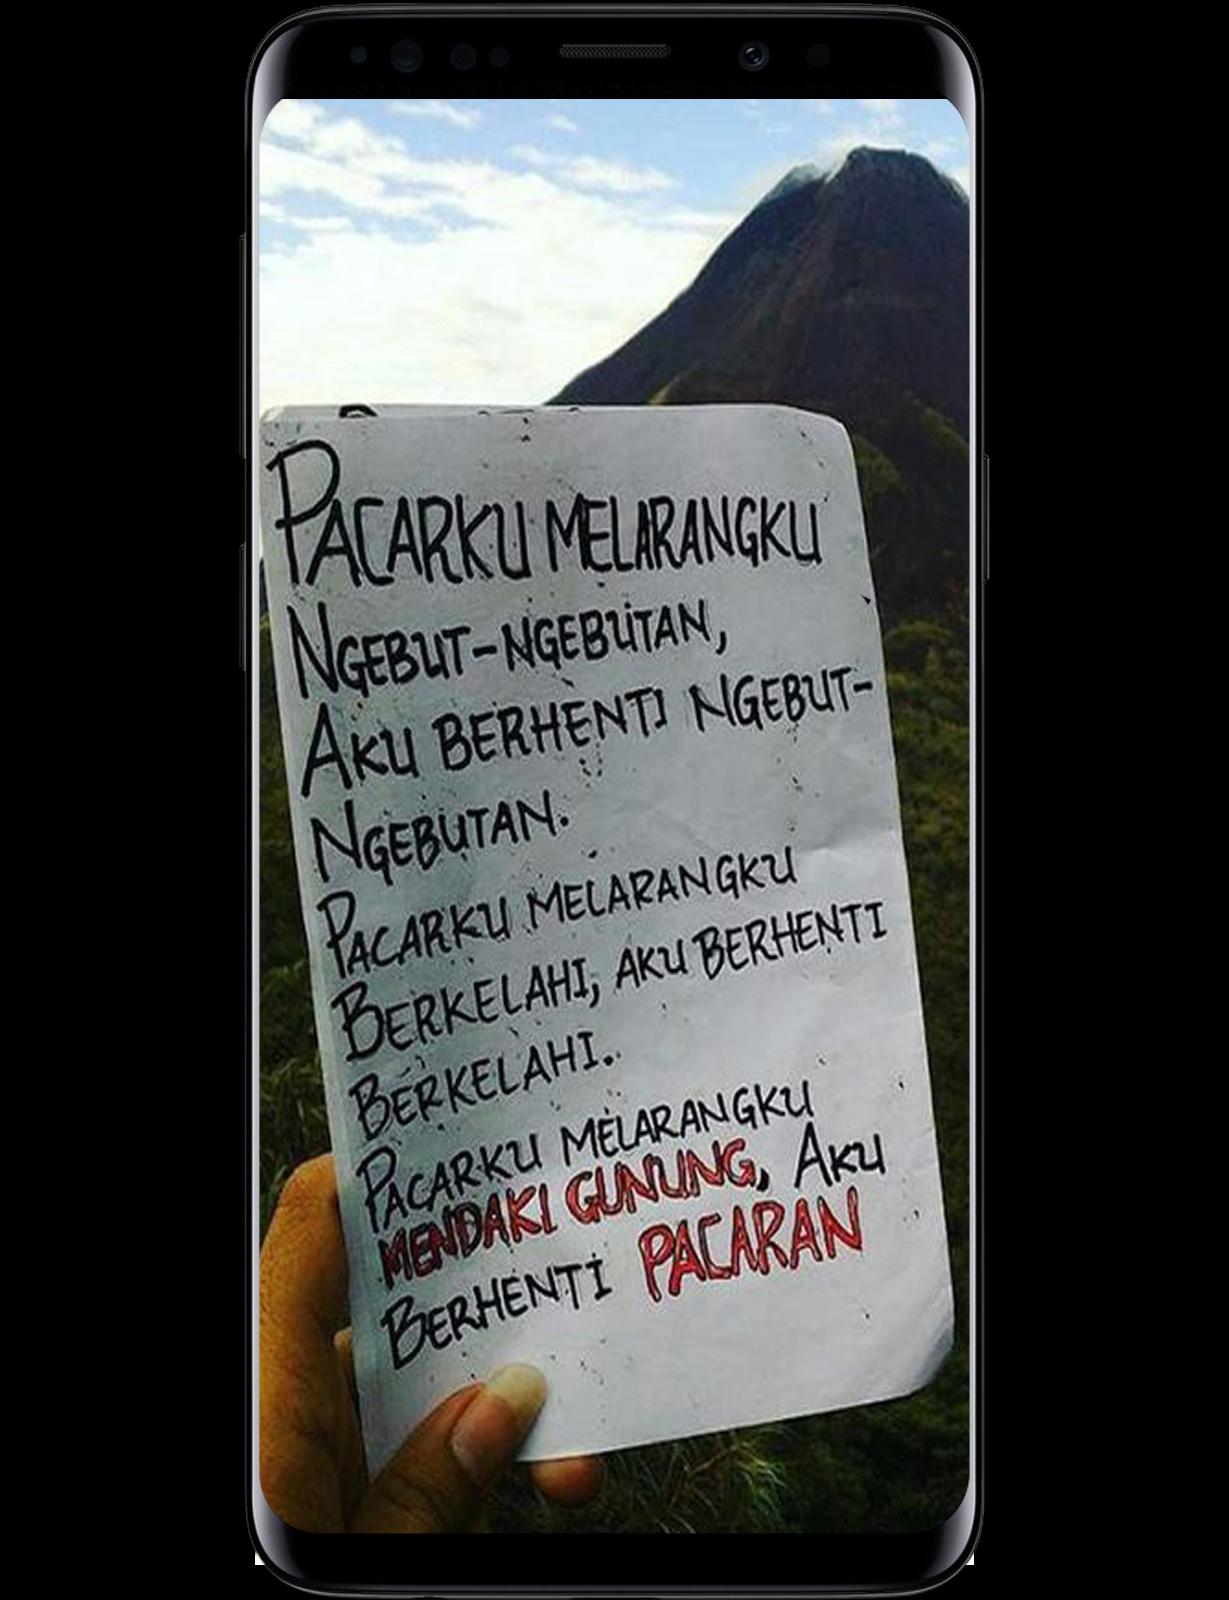 PACARKU MELARANGKU
NGEBUT-NGEBUTAN,
AKU BERHENTI NGEBUT-
NGEBUTAN.
PACARKU MELARANGKU
BERKELAHI, AKU BERHENTI
BERKELAHI.
PACARKU MELARANGKU
MENDAKI GUNUNG, AKU
BERHENTI PACARAN